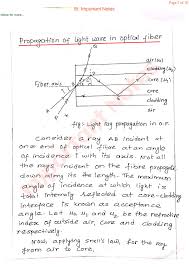 Page 2 of 10
Important Notes
Propagation of light wave in optical fiber
air (u0)
cladding (u2)
Fiber axis
core (u1)
core
cladding
air
fig: Light Ray propagation in o.F.
Consider a ray AB incident at
one end of optical fibre at an angle
of incidence i with its axis. Not all
the rays incident on the fibre propagate
down along its length. The maximum
angle of incidence at which light is
total internally Reflected at core-cladding
interface is known as acceptance
angle. Let u0, u1 and u2 be the refractive
index of outside air, core and cladding
respectively.
Now applying snell's law, for the ray
from air to core,